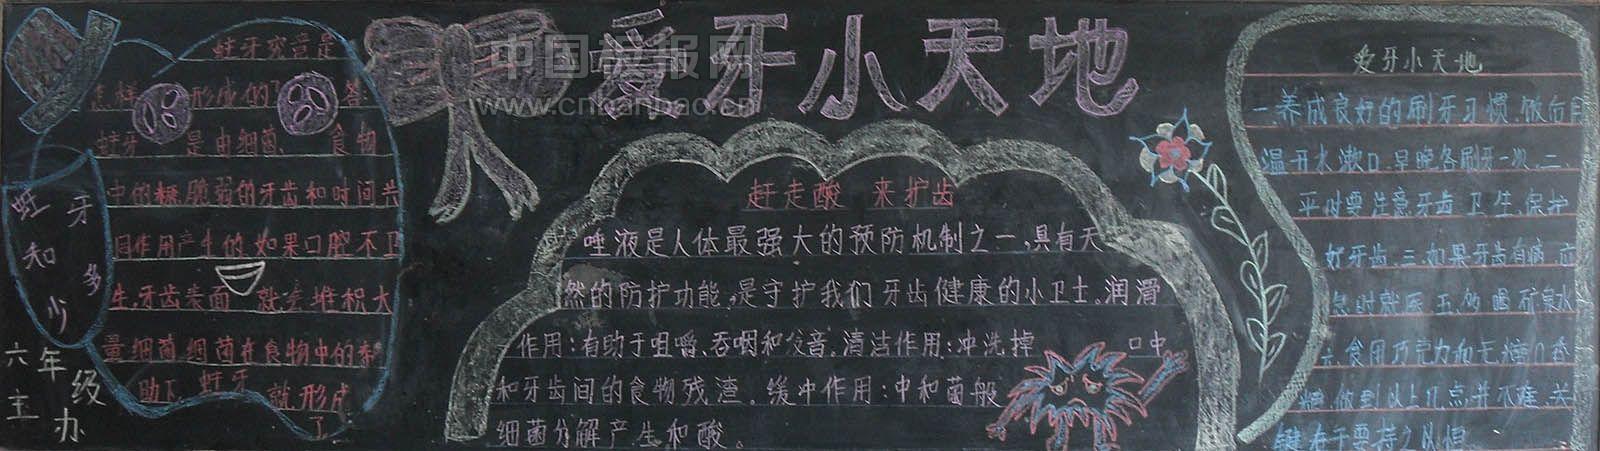 爱牙小天地
中国板报网
www.cnbanbao.cn
蛀牙知多少
六年级主办
蛀牙究竟是
怎样形成的?答
蛀牙是由细菌、食物
中的糖脆弱的牙齿和时间共
同作用产生的.如果口腔不卫
生,牙齿表面就会堆积大
量细菌.细菌在食物中的
助下.蛀牙就形成
了
赶走酸 来护齿
唾液是人体最强大的预防机制之一,具有天
然的防护功能,是守护我们牙齿健康的小卫士。润滑
作用:有助于咀嚼、吞咽和发音。清洁作用:冲洗掉口中
和牙齿间的食物残渣。缓冲作用:中和菌般
细菌分解产生和酸。
爱牙小天地
一.养成良好的刷牙习惯.饭后用
温开水漱口.早晚各刷牙一次.二.
平时要注意牙齿卫生.保护
好牙齿.三.如果牙齿有病.应
急时就医.五.勿喝矿泉水
六.食用巧克力和无糖口香
糖.做到以上几点并不难.关
键在于要持之以恒.